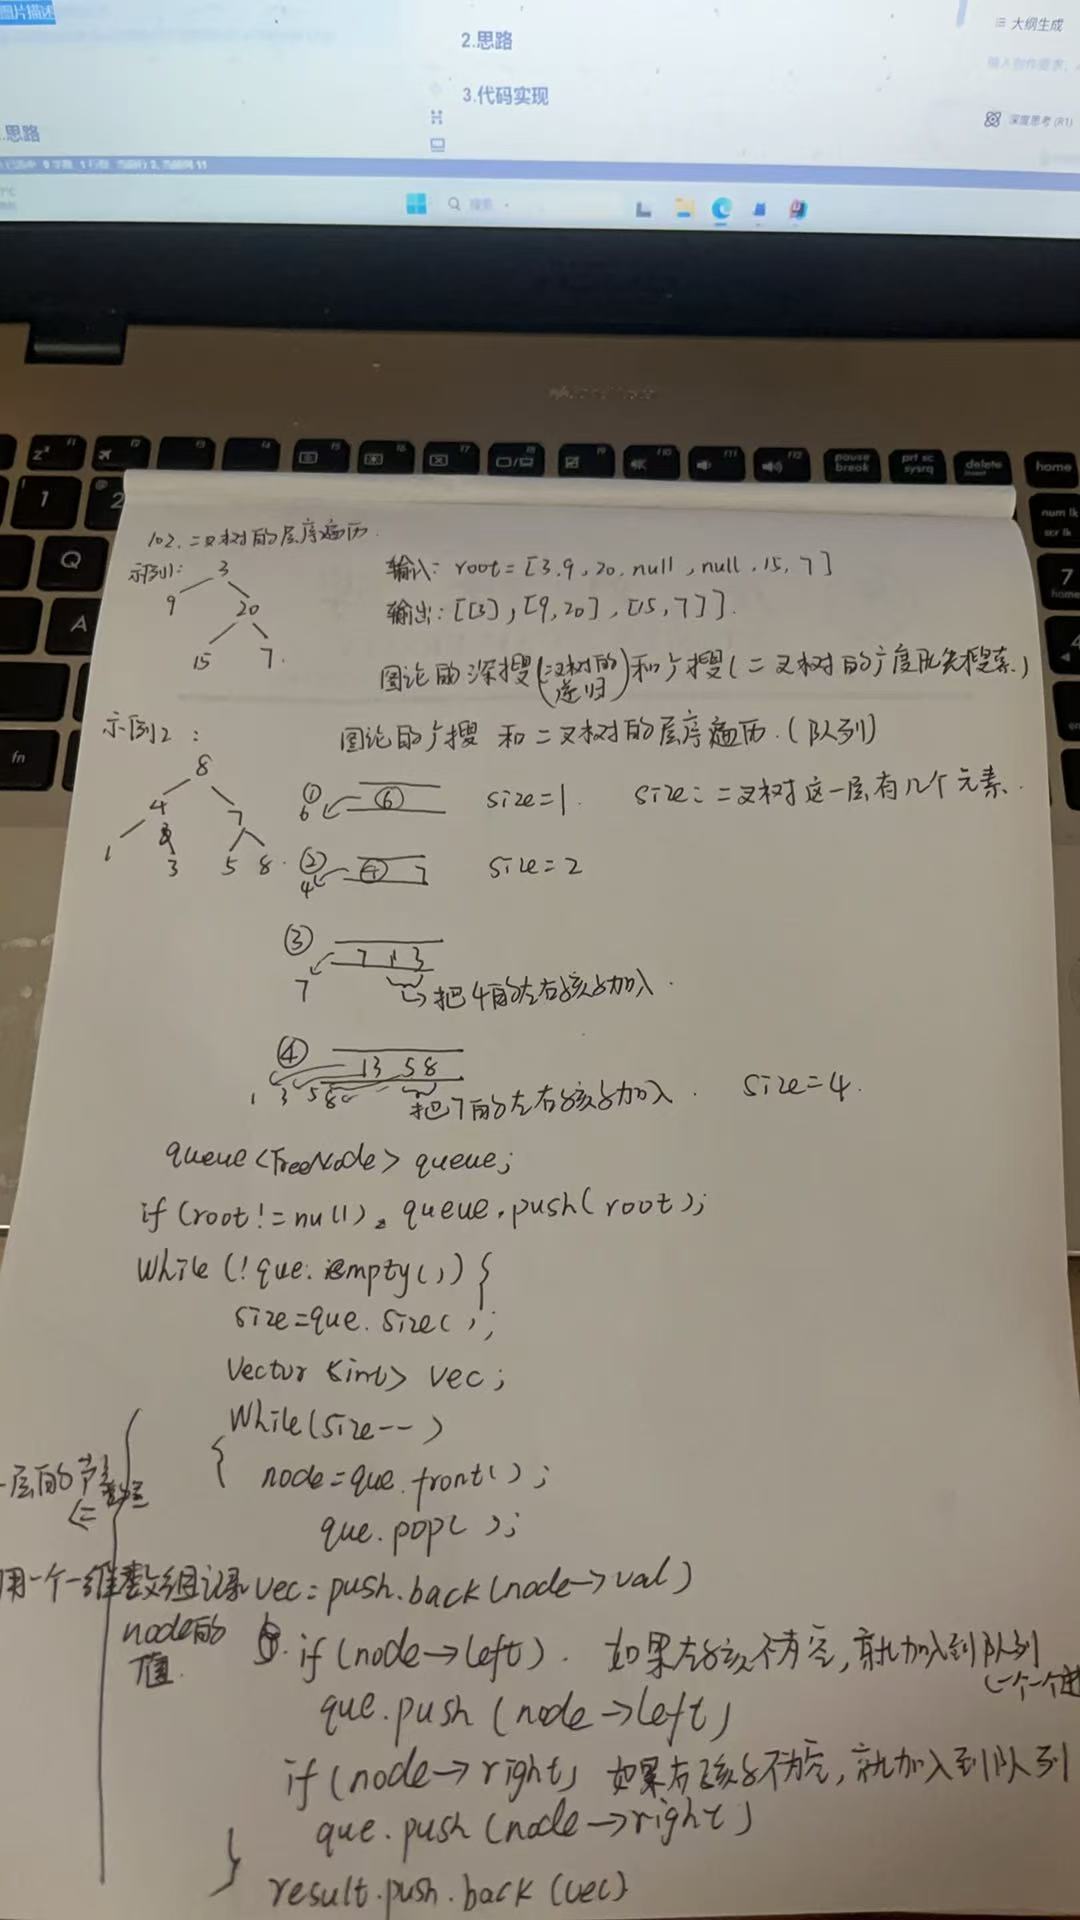 图片描述
2.思路
大纲生成
3.代码实现
深度思考(R1)
.思路
搜索
pause break
prt sc sysrq
delete
home
num lk
scr lk
1
2
Q
A
fn
7
home
4
102.二叉树的层序遍历.
示例1:
3
9 20
15 7.
输入: root=[3,9,20,null,null,15,7]
输出: [[3],[9,20],[15,7]].
图论的深搜(二叉树的递归)和广搜(二叉树的广度优先搜索)
示例2:
图论的广搜 和二叉树的层序遍历.(队列)
8
4 7
1 3 5 8.
① 6 ⑥ size=1 size:二叉树这一层有几个元素.
② 4 ④ 7 size=2
③ 7 7 1 3
把4的左右孩子加入.
④ 1 3 5 8 13 58
把7的左右孩子加入. size=4.
queue<TreeNode> queue;
if(root!=null). queue.push(root);
while(!que.isempty()){
size=que.size();
vector<int> vec;
while(size--)
{ node=que.front();
que.pop();
一层的节点
用一个一维数组记录 vec=push.back(node->val)
node的值.
if(node->left). 如果左孩不为空,就加入到队列
(一个一个进
que.push(node->left)
if(node->right) 如果右孩子不为空,就加入到队列
que.push(node->right)
}
result.push.back(vec)